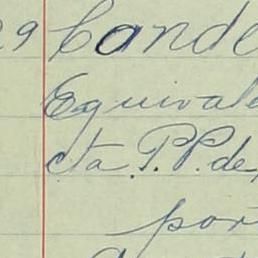 29 Cande
Equivale
cta P.P. de
por